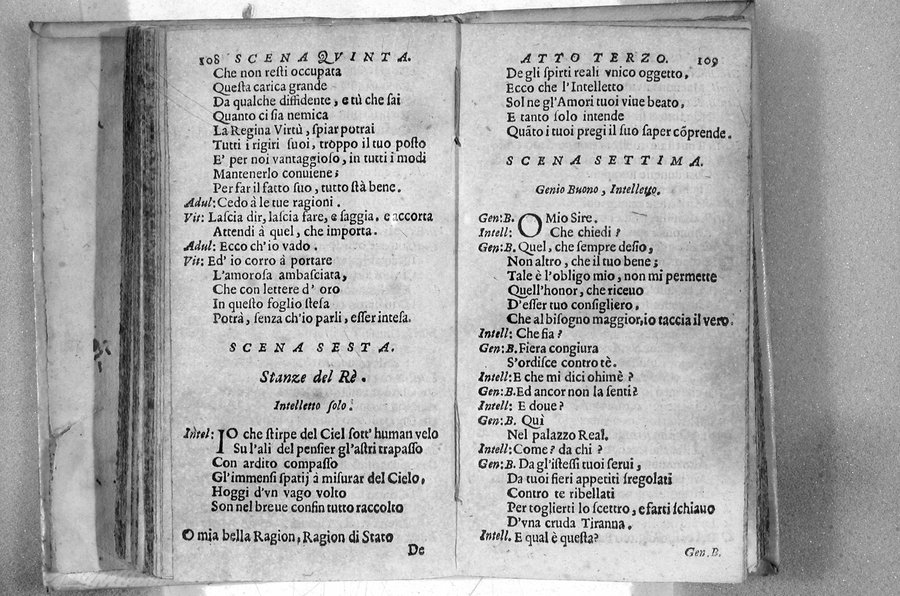 108 SCENA QVINTA.
Che non reſti occupata
Queſta carica grande
Da qualche diffidente, e tù che ſai
Quanto ci ſia nemica
La Regina Virtù, ſpiar potrai
Tutti i rigiri ſuoi, troppo il tuo poſto
E' per noi vantaggioſo, in tutti i modi
Mantenerlo conuiene;
Per far il fatto ſuo, tutto ſtà bene.
Adul: Cedo à le tue ragioni.
Vit: Laſcia dir, laſcia fare, e ſaggia. e accorta
Attendi à quel, che importa.
Adul: Ecco ch'io vado.
Vit: Ed' io corro à portare
L'amoroſa ambaſciata,
Che con lettere d' oro
In queſto foglio ſteſa
Potrà, ſenza ch'io parli, eſſer inteſa.
SCENA SESTA.
Stanze del Rè.
Intelletto ſolo.
Intel: IO che ſtirpe del Ciel ſott' human velo
Su l'ali del penſier gl'aſtri trapaſſo
Con ardito compaſſo
Gl'immenſi ſpatij à miſurar del Cielo,
Hoggi d'vn vago volto
Son nel breue confin tutto raccolto
O mia bella Ragion, Ragion di Stato
De
ATTO TERZO. 109
De gli ſpirti reali vnico oggetto,
Ecco che l'Intelletto
Sol ne gl'Amori tuoi viue beato,
E tanto ſolo intende
Quãto i tuoi pregi il ſuo ſaper cõprende.
SCENA SETTIMA.
Genio Buono, Intelletto.
Gen:B. O Mio Sire.
Intell: Che chiedi?
Gen:B. Quel, che ſempre deſio,
Non altro, che il tuo bene;
Tale è l'obligo mio, non mi permette
Quell'honor, che riceuo
D'eſſer tuo conſigliero,
Che al biſogno maggior, io taccia il vero.
Intell: Che fia?
Gen:B. Fiera congiura
S'ordiſce contro tè.
Intell: E che mi dici ohimè?
Gen:B. Ed ancor non la ſenti?
Intell: E doue?
Gen:B. Quì
Nel palazzo Real.
Intell: Come? da chi?
Gen:B. Da gl'iſteſſi tuoi ſerui,
Da tuoi fieri appetiti ſregolati
Contro te ribellati
Per toglierti lo ſcettro, e farti ſchiauo
D'vna cruda Tiranna.
Intell. E qual è queſta?
Gen.B.